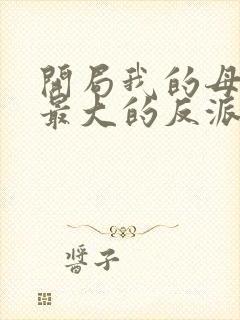 開局我的母
最大的反派
醬子